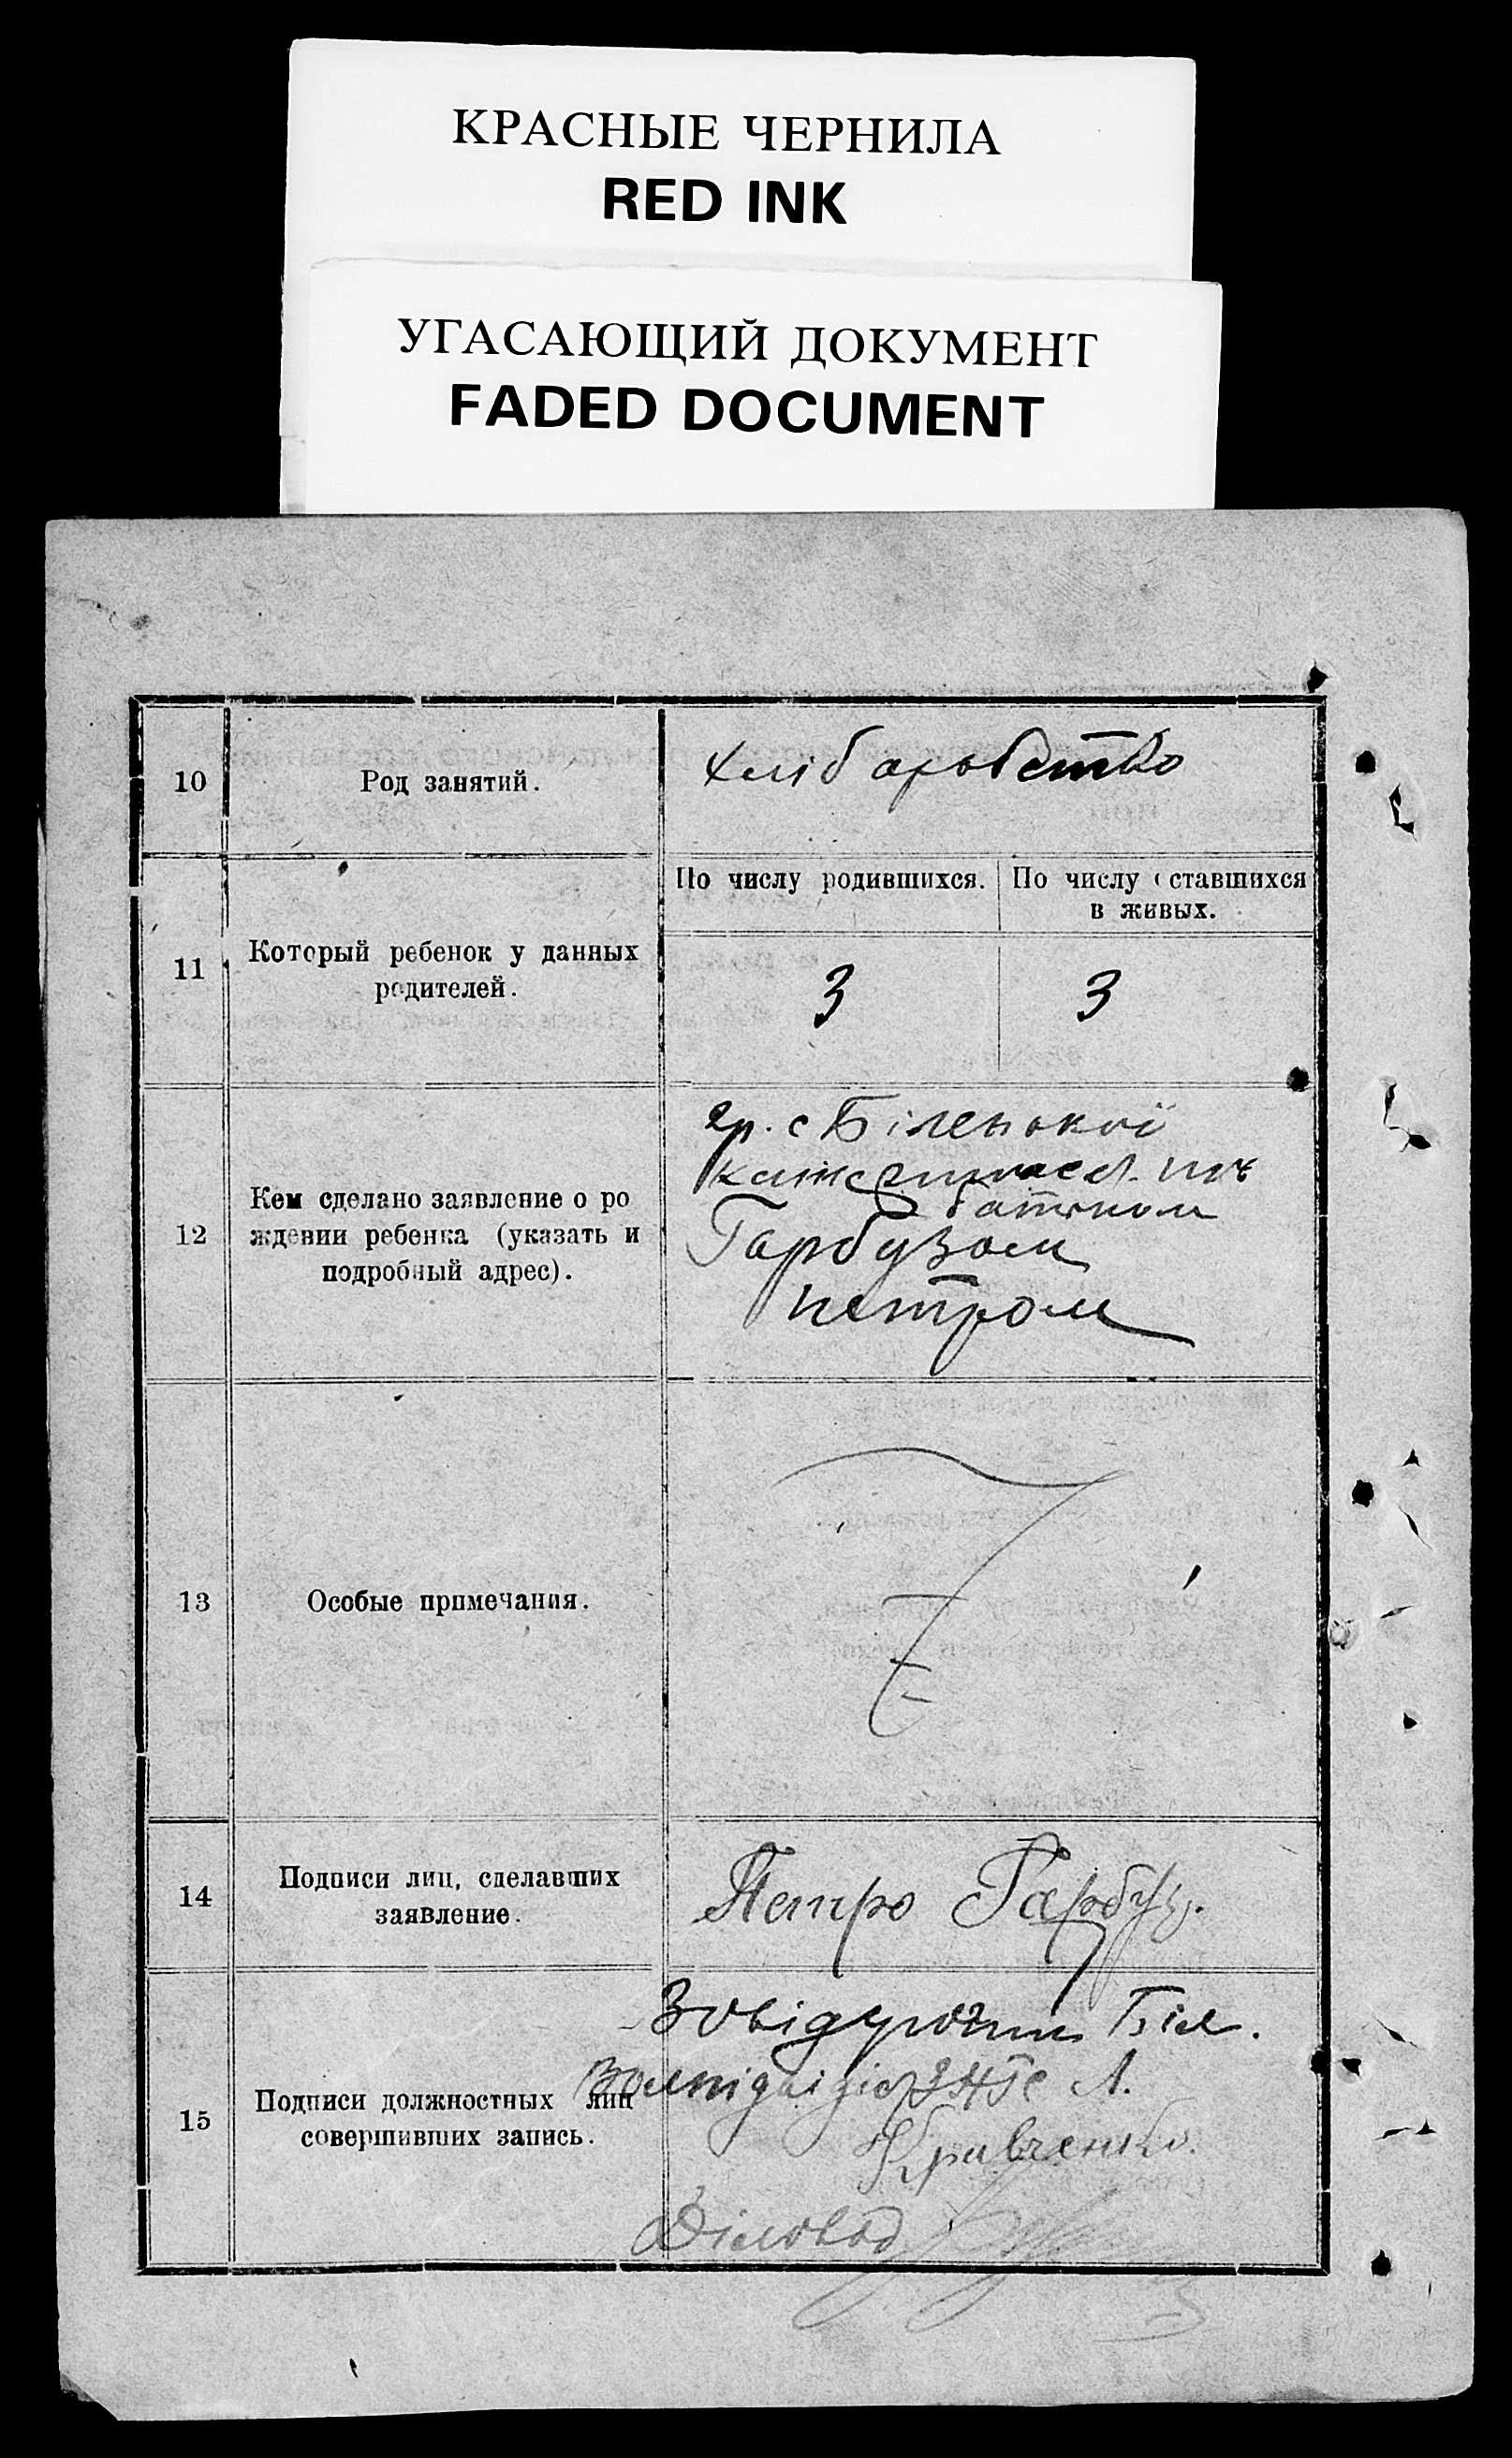 КРАСНЫЕ ЧЕРНИЛА
RED INK
УГАСАЮЩИЙ ДОКУМЕНТ
FADED DOCUMENT
10 Род занятий. Хліборобство
11 Который ребенок у данных
родителей.
По числу родившихся. По числу оставшихся
в живых.
3 3
12 Кем сделано заявление о ро
ждении ребенка (указать и
подробный адрес).
гр. с Біленької
батьком
Гарбузом
Петром
13 Особые примечания.
14 Подписи лиц, сделавших
заявление.
Петро Гарбуз.
15 Подписи должностных лиц
совершивших запись.
Завідуючий Біл.
Кравченко.
Діловод